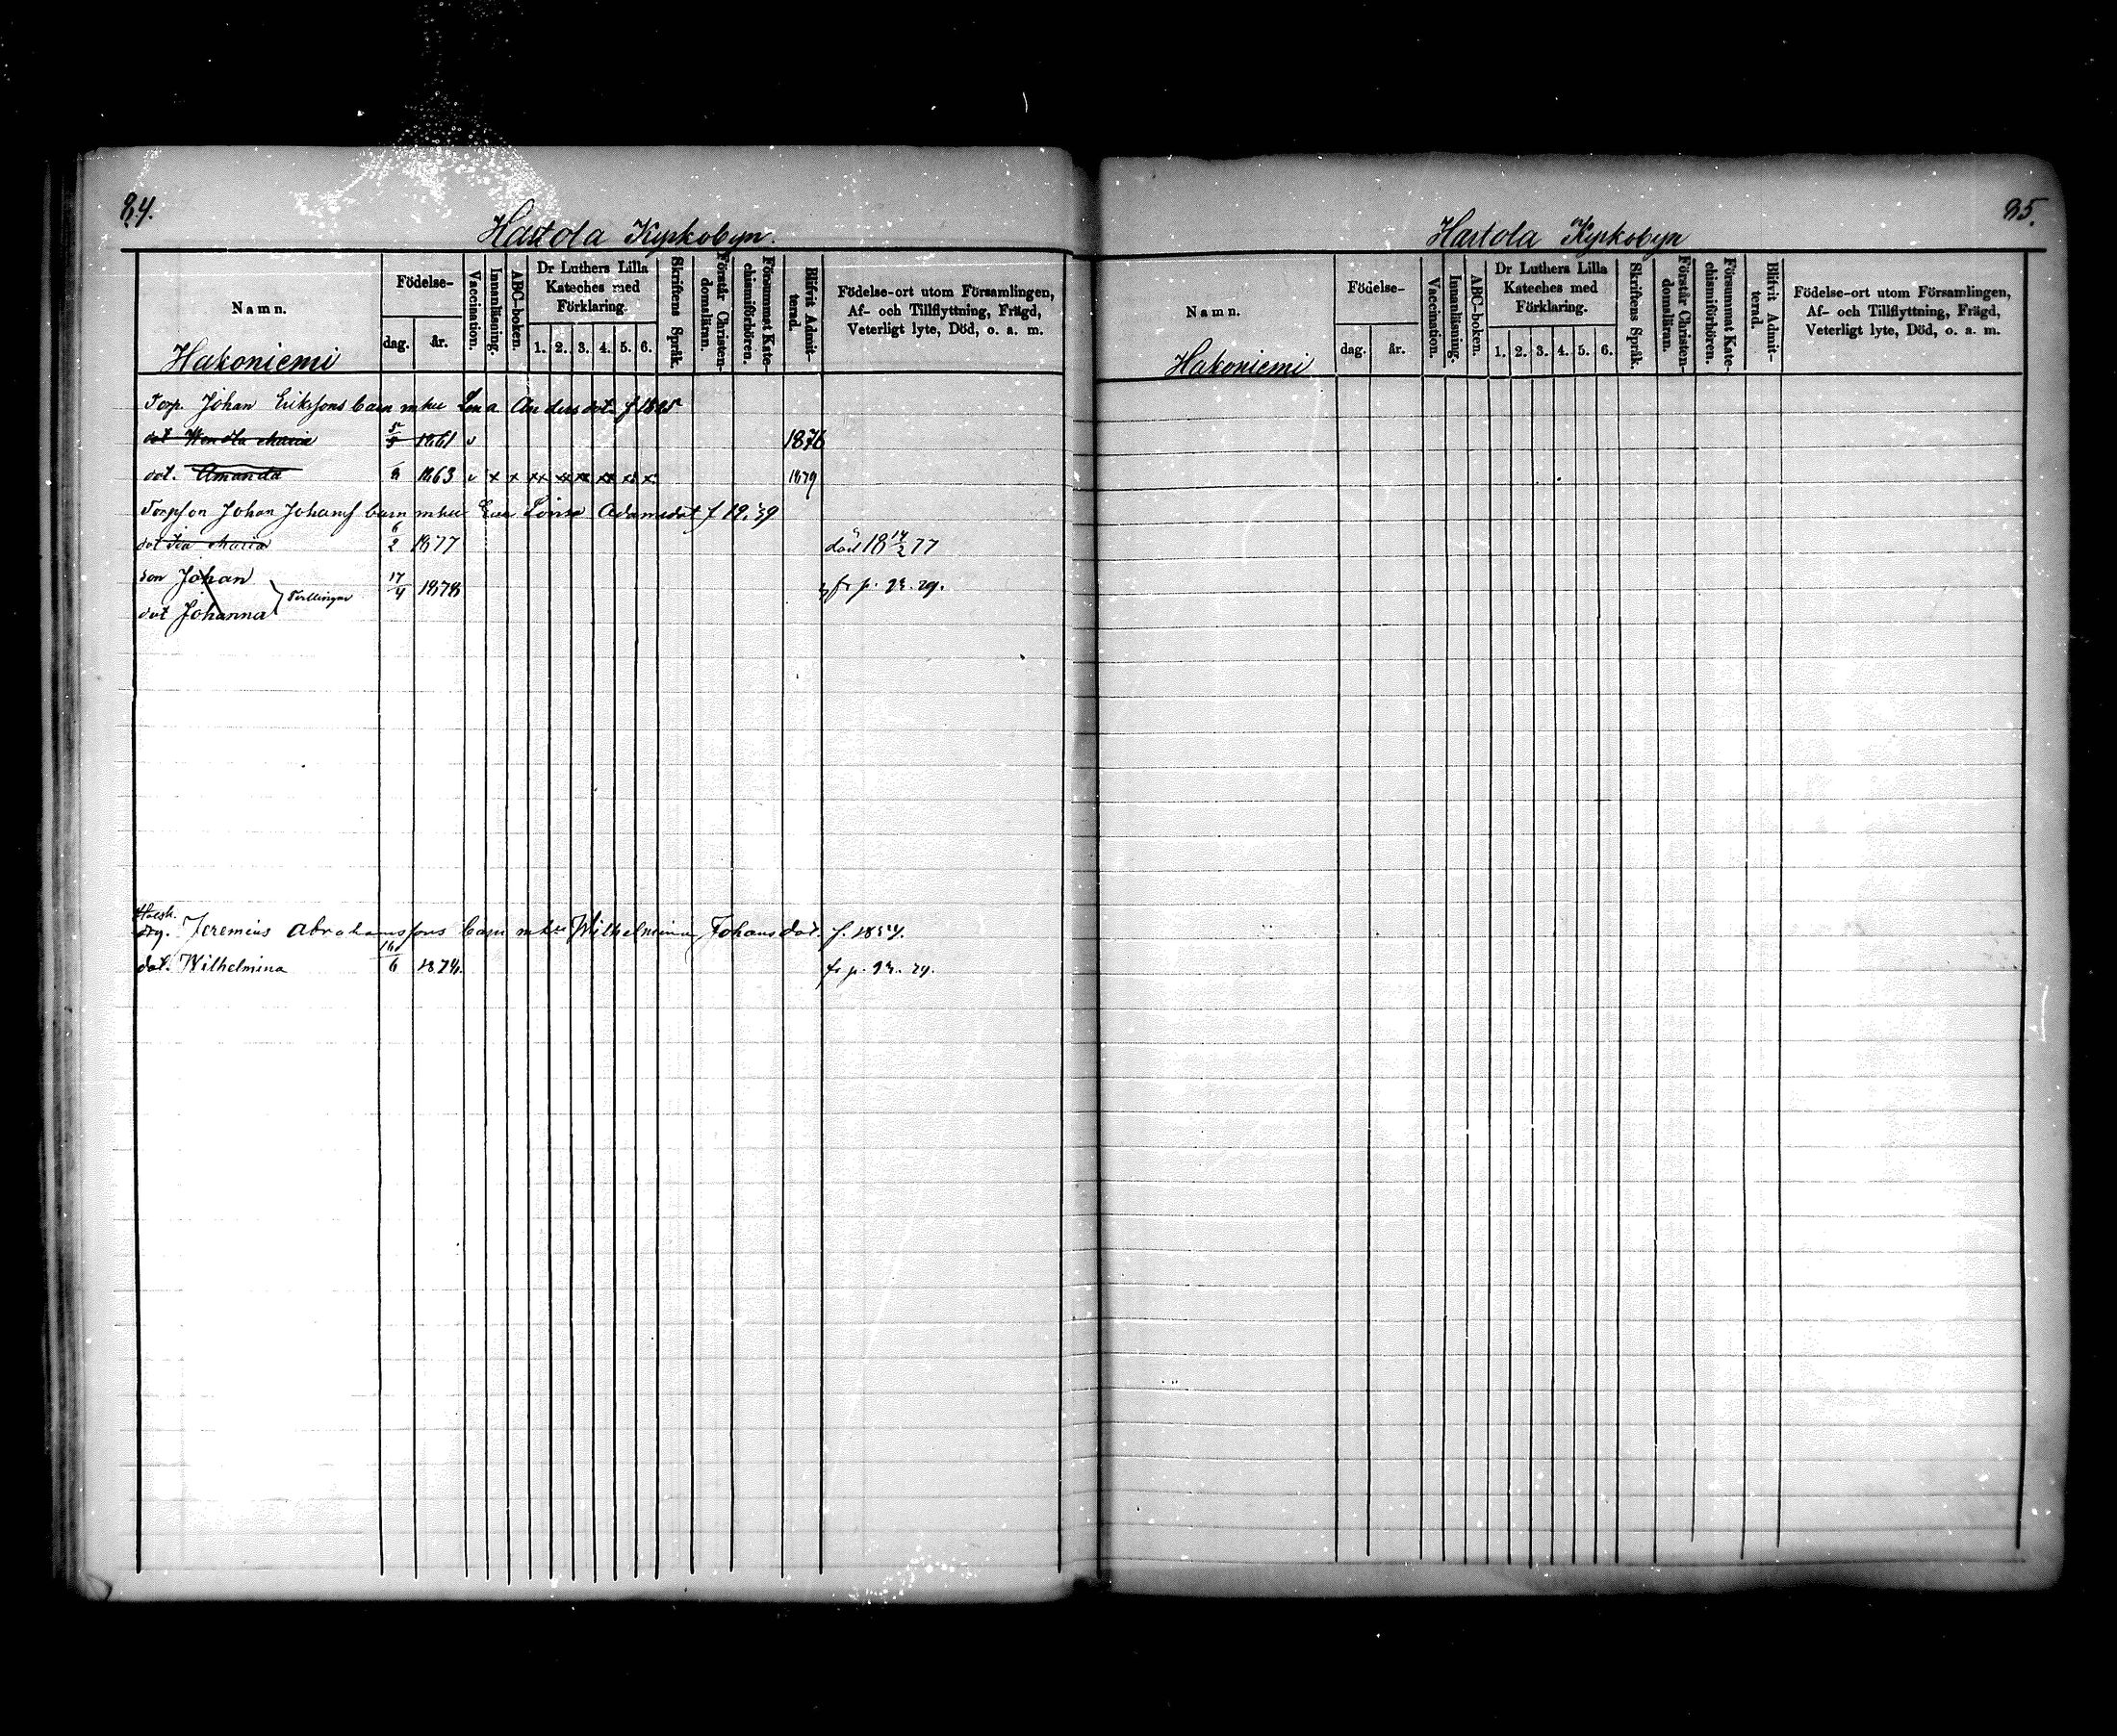 84.
Hartola Kyrkobyn.
Namn.
Födelse-
dag.
år.
Vaccination.
Innanläsning.
ABC-boken.
Dr Luthers Lilla
Kateches med
Förklaring.
1. 2. 3. 4. 5. 6.
Skriftens Språk.
Förstår Christen-
domsläran.
Försummat Kate-
chismiförhören.
Blifvit Admit-
terad.
Födelse-ort utom Församlingen,
Af- och Tillflyttning, Frägd,
Veterligt lyte, Död, o. a. m.
Hakoniemi
Torp. Johan Erikssons barn mhu Lena Andersdot. f 1825
dot Wendla Maria 5/5 1861 v 1876
dot. Amanda 8 1863 v x x xx xx xx xx xx x 1879
Torpson Johan Johanss barn mhu Eva Lovisa Adamsdot f
dot Maria 6/2 1877 död 18 14/2 77
son Johan
17/4 1878 fr p.
Tvillingar
dot Johanna
Jeremias Abrahamssons barn mhu Wilhelmina Johansdot. f.
dot. Wilhelmina 16/6 fr p.
85.
Hartola Kyrkobyn
Namn.
Födelse-
dag.
år.
Vaccination.
Innanläsning.
ABC-boken.
Dr Luthers Lilla
Kateches med
Förklaring.
1. 2. 3. 4. 5. 6.
Skriftens Språk.
Förstår Christen-
domsläran.
Försummat Kate-
chismiförhören.
Blifvit Admit-
terad.
Födelse-ort utom Församlingen,
Af- och Tillflyttning, Frägd,
Veterligt lyte, Död, o. a. m.
Hakoniemi